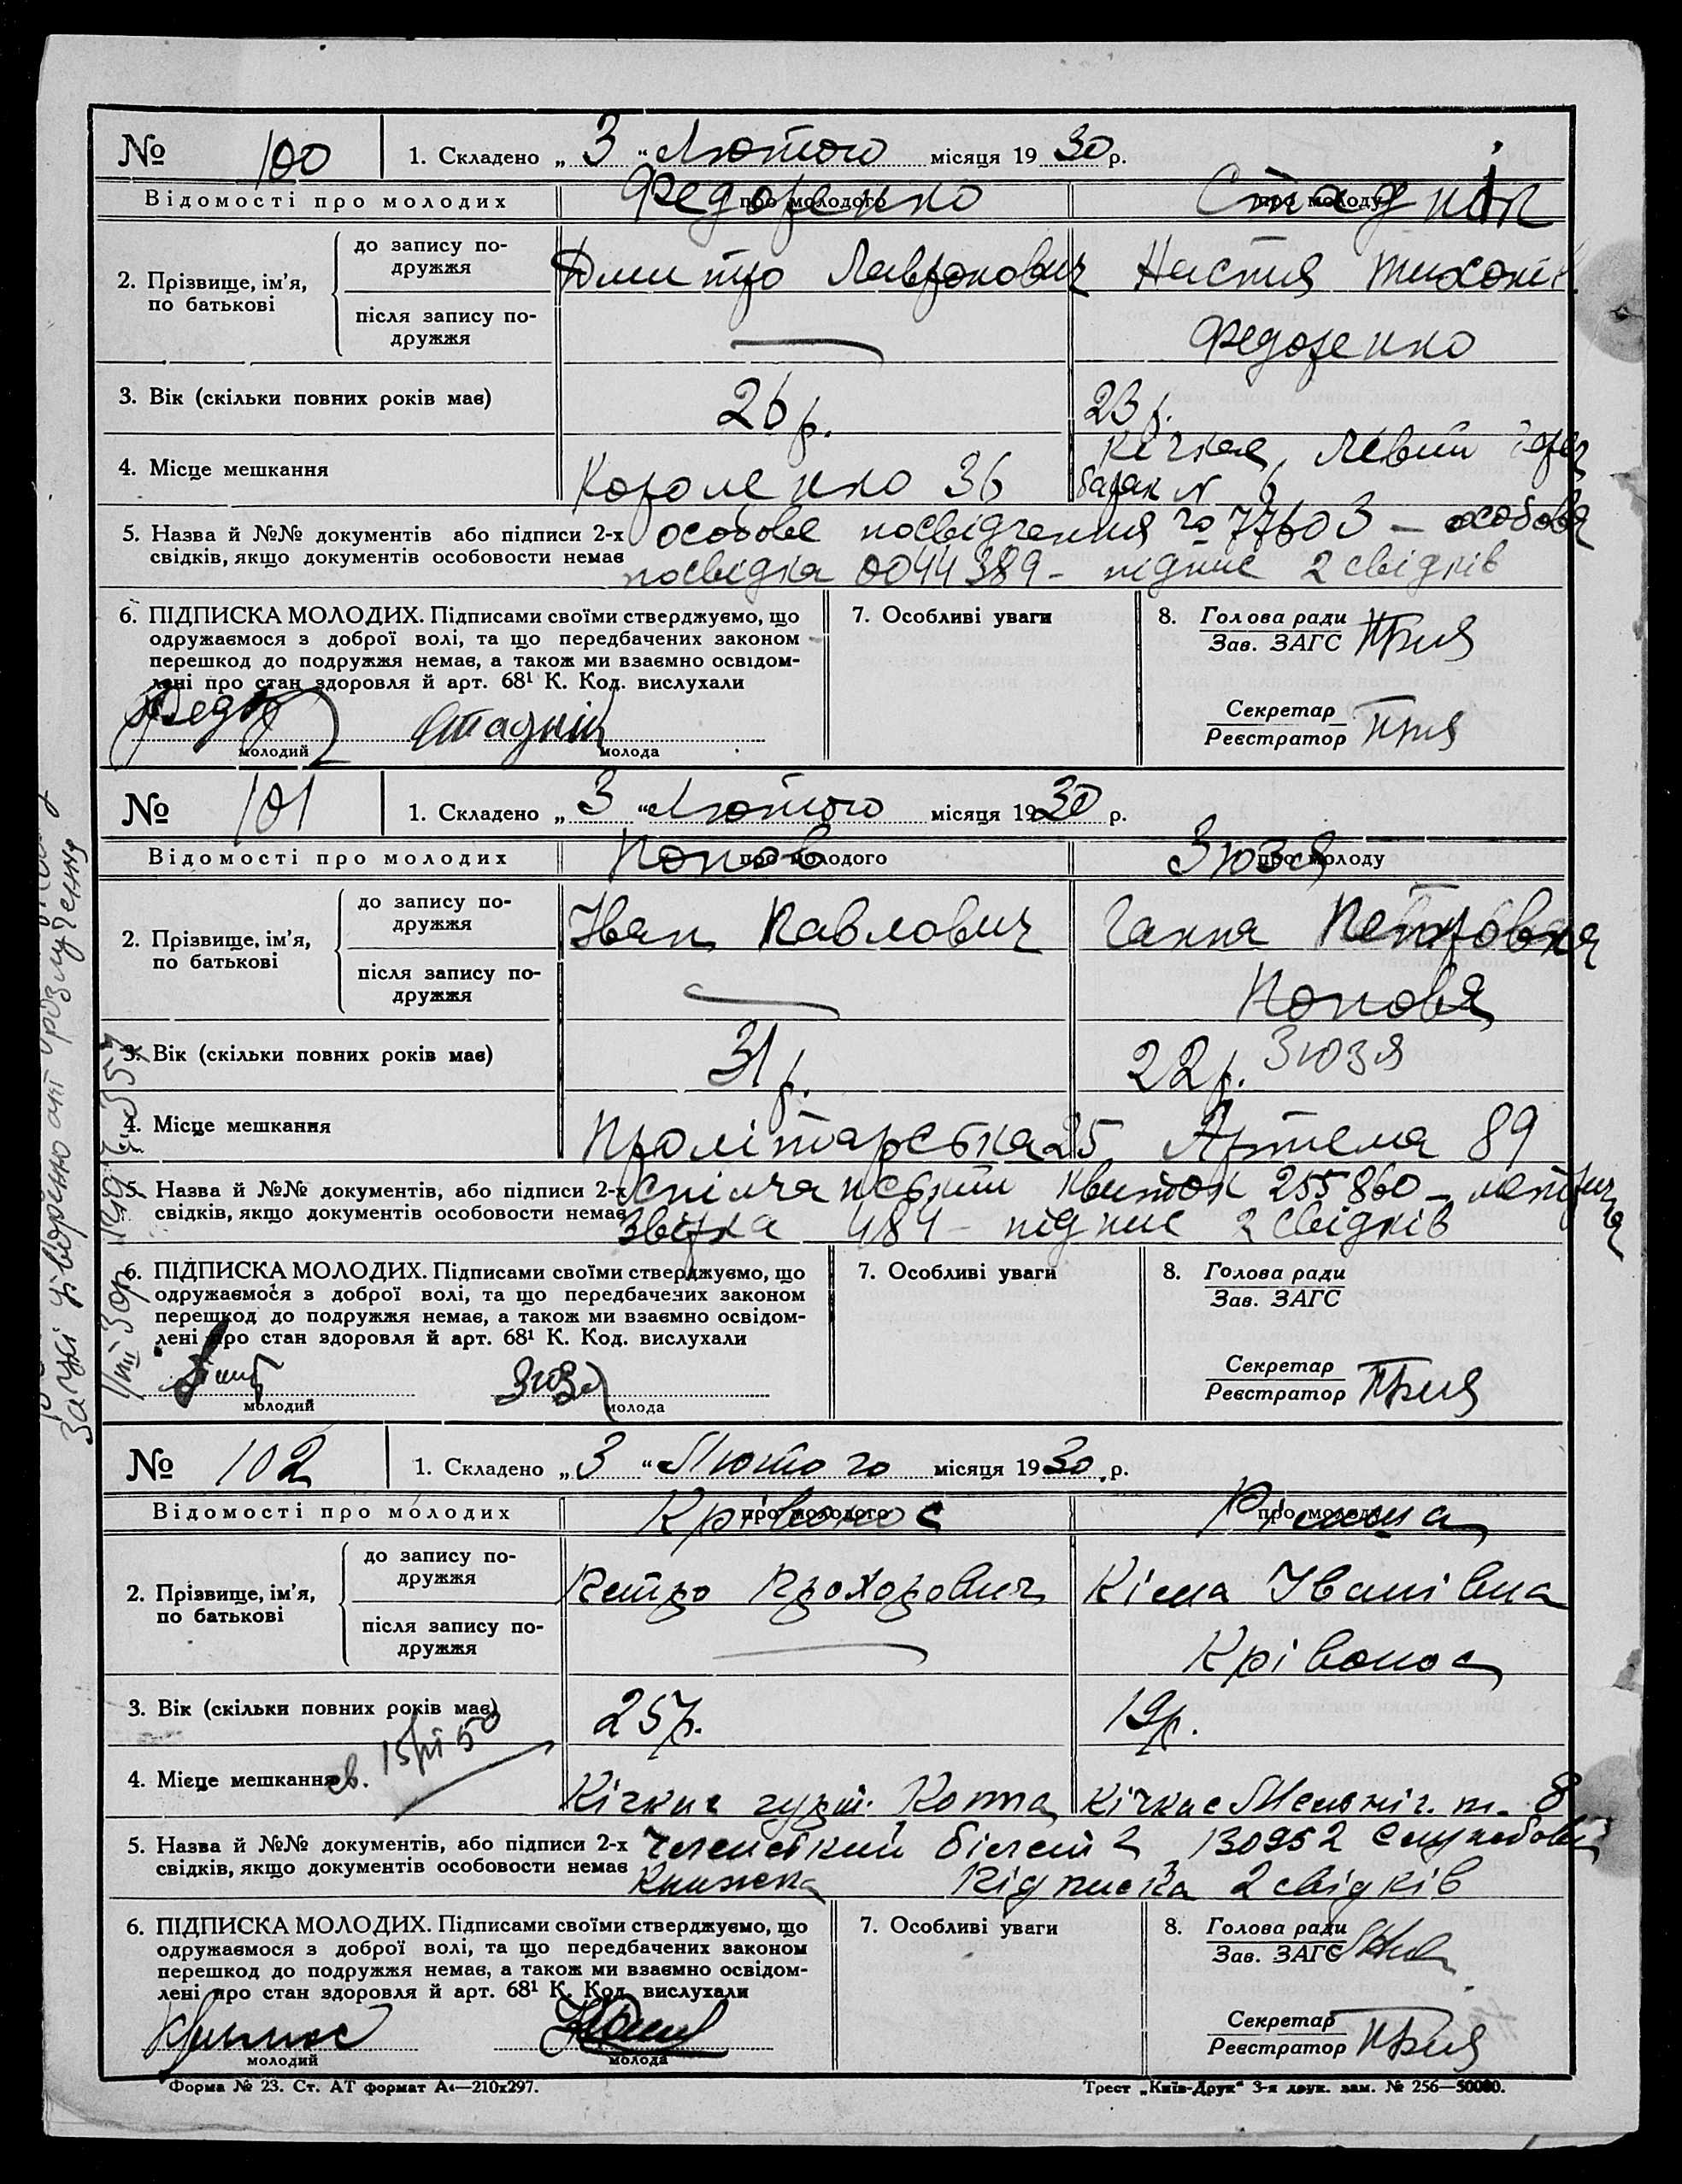 № 100 1. Складено „ 3 “ Лютого місяця 19 30 р.
Відомості про молодих про молодого про молоду
Федоренко Стадник
2. Прізвище, ім’я, по батькові
до запису по-
дружжя
Дмитро Лавронович Настя Тихонів.
після запису по-
дружжя
— Федоренко
3. Вік (скільки повних років має) 26 р. 23 р.
4. Місце мешкання Короленко 36 Кічкас, Лівий берег
барак № 6
5. Назва й №№ документів або підписи 2-х особове посвідчення № 77603 – особова
свідків, якщо документів особовости немає посвідка 0044389 – підпис 2 свідків
6. ПІДПИСКА МОЛОДИХ. Підписами своїми стверджуємо, що
одружаємося з доброї волі, та що передбачених законом
перешкод до подружжя немає, а також ми взаємно освідом-
лені про стан здоровля й арт. 68¹ К. Код. вислухали
Стадник
молодий молода
7. Особливі уваги
8. Голова ради
Зав. ЗАГС
Секретар
Реєстратор
№ 101 1. Складено „ 3 “ Лютого місяця 19 30 р.
Відомості про молодих про молодого про молоду
Попов Зюзя
2. Прізвище, ім’я, по батькові
до запису по-
дружжя
Іван Павлович Ганна Петровна
після запису по-
дружжя
— Попова
3. Вік (скільки повних років має) 31 р. 22 р. Зюзя
4. Місце мешкання Пролітарська 25 Артема 89
5. Назва й №№ документів, або підписи 2-х спілчанський квиток 255860 – метрична
свідків, якщо документів особовости немає 484 – підпис 2 свідків
6. ПІДПИСКА МОЛОДИХ. Підписами своїми стверджуємо, що
одружаємося з доброї волі, та що передбачених законом
перешкод до подружжя немає, а також ми взаємно освідом-
лені про стан здоровля й арт. 68¹ К. Код. вислухали
Зюзя
молодий молода
7. Особливі уваги
8. Голова ради
Зав. ЗАГС
Секретар
Реєстратор
№ 102 1. Складено „ 3 “ Лютого місяця 19 30 р.
Відомості про молодих про молодого про молоду
Крівонос
2. Прізвище, ім’я, по батькові
до запису по-
дружжя
Петро Прохорович Кіма Іванівна
після запису по-
дружжя
— Крівонос
3. Вік (скільки повних років має) 25 р. 19 р.
4. Місце мешкання Кічкас Кічкас 8
5. Назва й №№ документів, або підписи 2-х членський білет 130952
свідків, якщо документів особовости немає книжка Підписка 2 свідків
6. ПІДПИСКА МОЛОДИХ. Підписами своїми стверджуємо, що
одружаємося з доброї волі, та що передбачених законом
перешкод до подружжя немає, а також ми взаємно освідом-
лені про стан здоровля й арт. 68¹ К. Код. вислухали
молодий молода
7. Особливі уваги
8. Голова ради
Зав. ЗАГС
Секретар
Реєстратор
Форма № 23. Ст. АТ формат А₄—210х297. Трест „Київ-Друк“ 3-я друк. зам. № 256—50000.